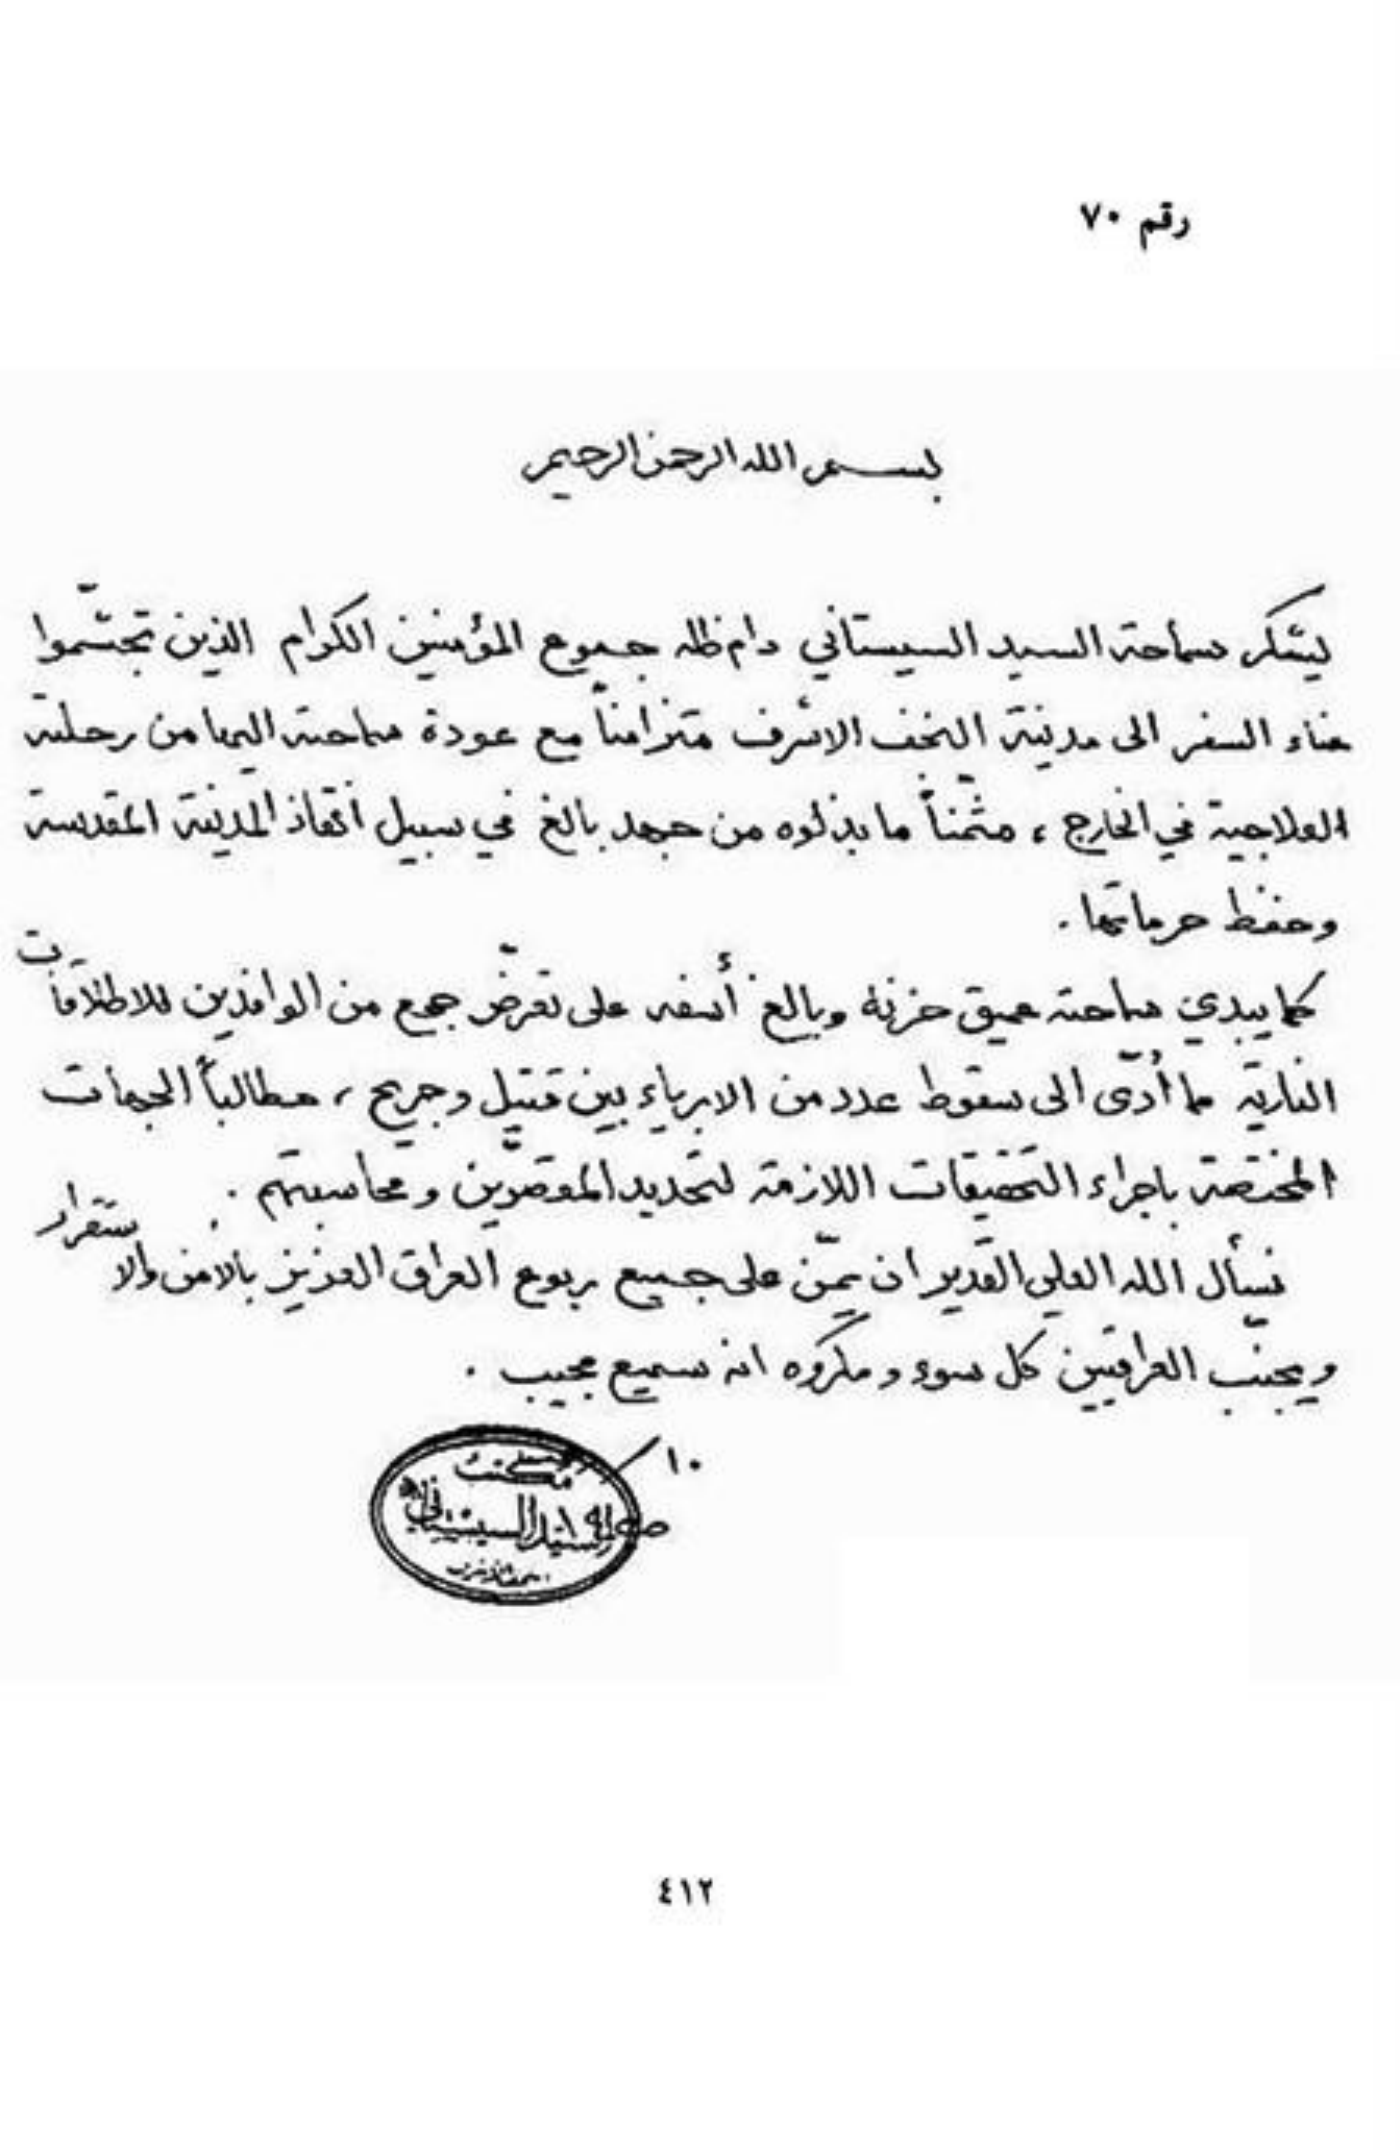 رقم ٧٠
بسم الله الرحمن الرحيم
يشكر سماحة السيد السيستاني دام ظله جميع المؤمنين الكرام الذين تجشّموا
عناء السفر الى مدينة النجف الاشرف متزامناً مع عودة سماحته اليها من رحلته
العلاجية في الخارج ، مثمّناً ما بذلوه من جهد بالغ في سبيل انقاذ المدينة المقدسة
وحفظ حرماتها .
كما يبدي سماحته عميق حزنه وبالغ أسفه على تعرّض جمع من الوافدين للاطلاقات
النارية مما أدّى الى سقوط عدد من الابرياء بين قتيل وجريح ، مطالباً الجهات
المختصة باجراء التحقيقات اللازمة لتحديد المقصّرين ومحاسبتهم .
نسأل الله العلي القدير ان يمنّ على جميع ربوع العراق العزيز بالأمن والاستقرار
ويجنّب العراقيين كل سوء ومكروه انه سميع مجيب .
١٠
مكتب
السيد السيستاني
٤١٢